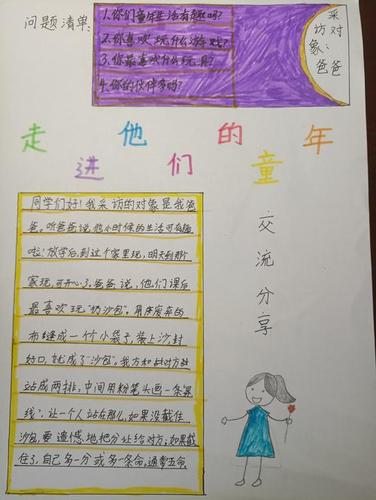 问题清单:
1.你们童年生活有趣吗?
2.你喜欢玩什么游戏?
3.你最喜欢什么玩具?
4.你的伙伴多吗?
采访对象:爸爸
走进他们的童年
同学们好!我采访的对象是我爸
爸。听爸爸说,他小时候的生活可有趣
啦!放学后,到这个家里玩,明天到那个
家玩,可开心了。爸爸说,他们课后
最喜欢玩“扔沙包”。用废弃的
布缝成一个小袋子,装上沙封
好口,就成了“沙包”。我方和敌对方站
站成两排,中间用粉笔头画一条“
线”。让一个人站在那儿,如果没截住
沙包,要遗憾地把分让给对方;如果截
住了,自己多一分或多一条命,通常五命
交流分享